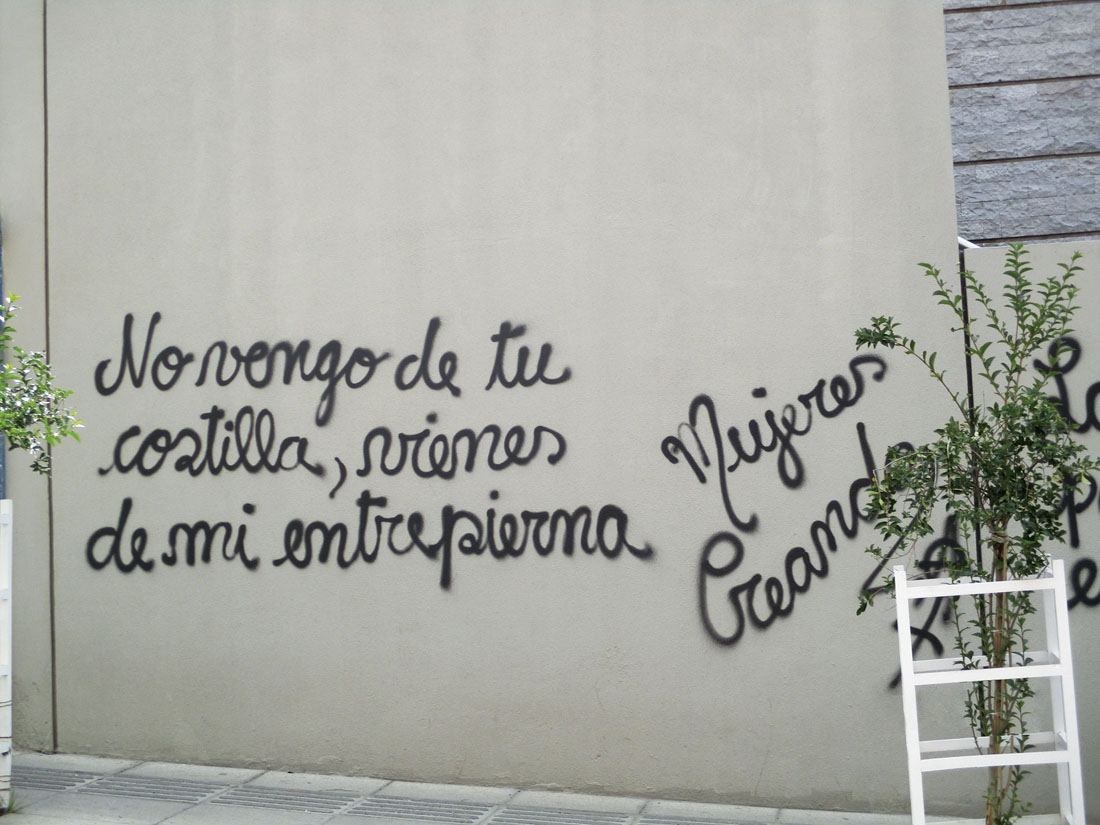 No vengo de tu
costilla, vienes
de mi entrepierna
Mujeres
Creando